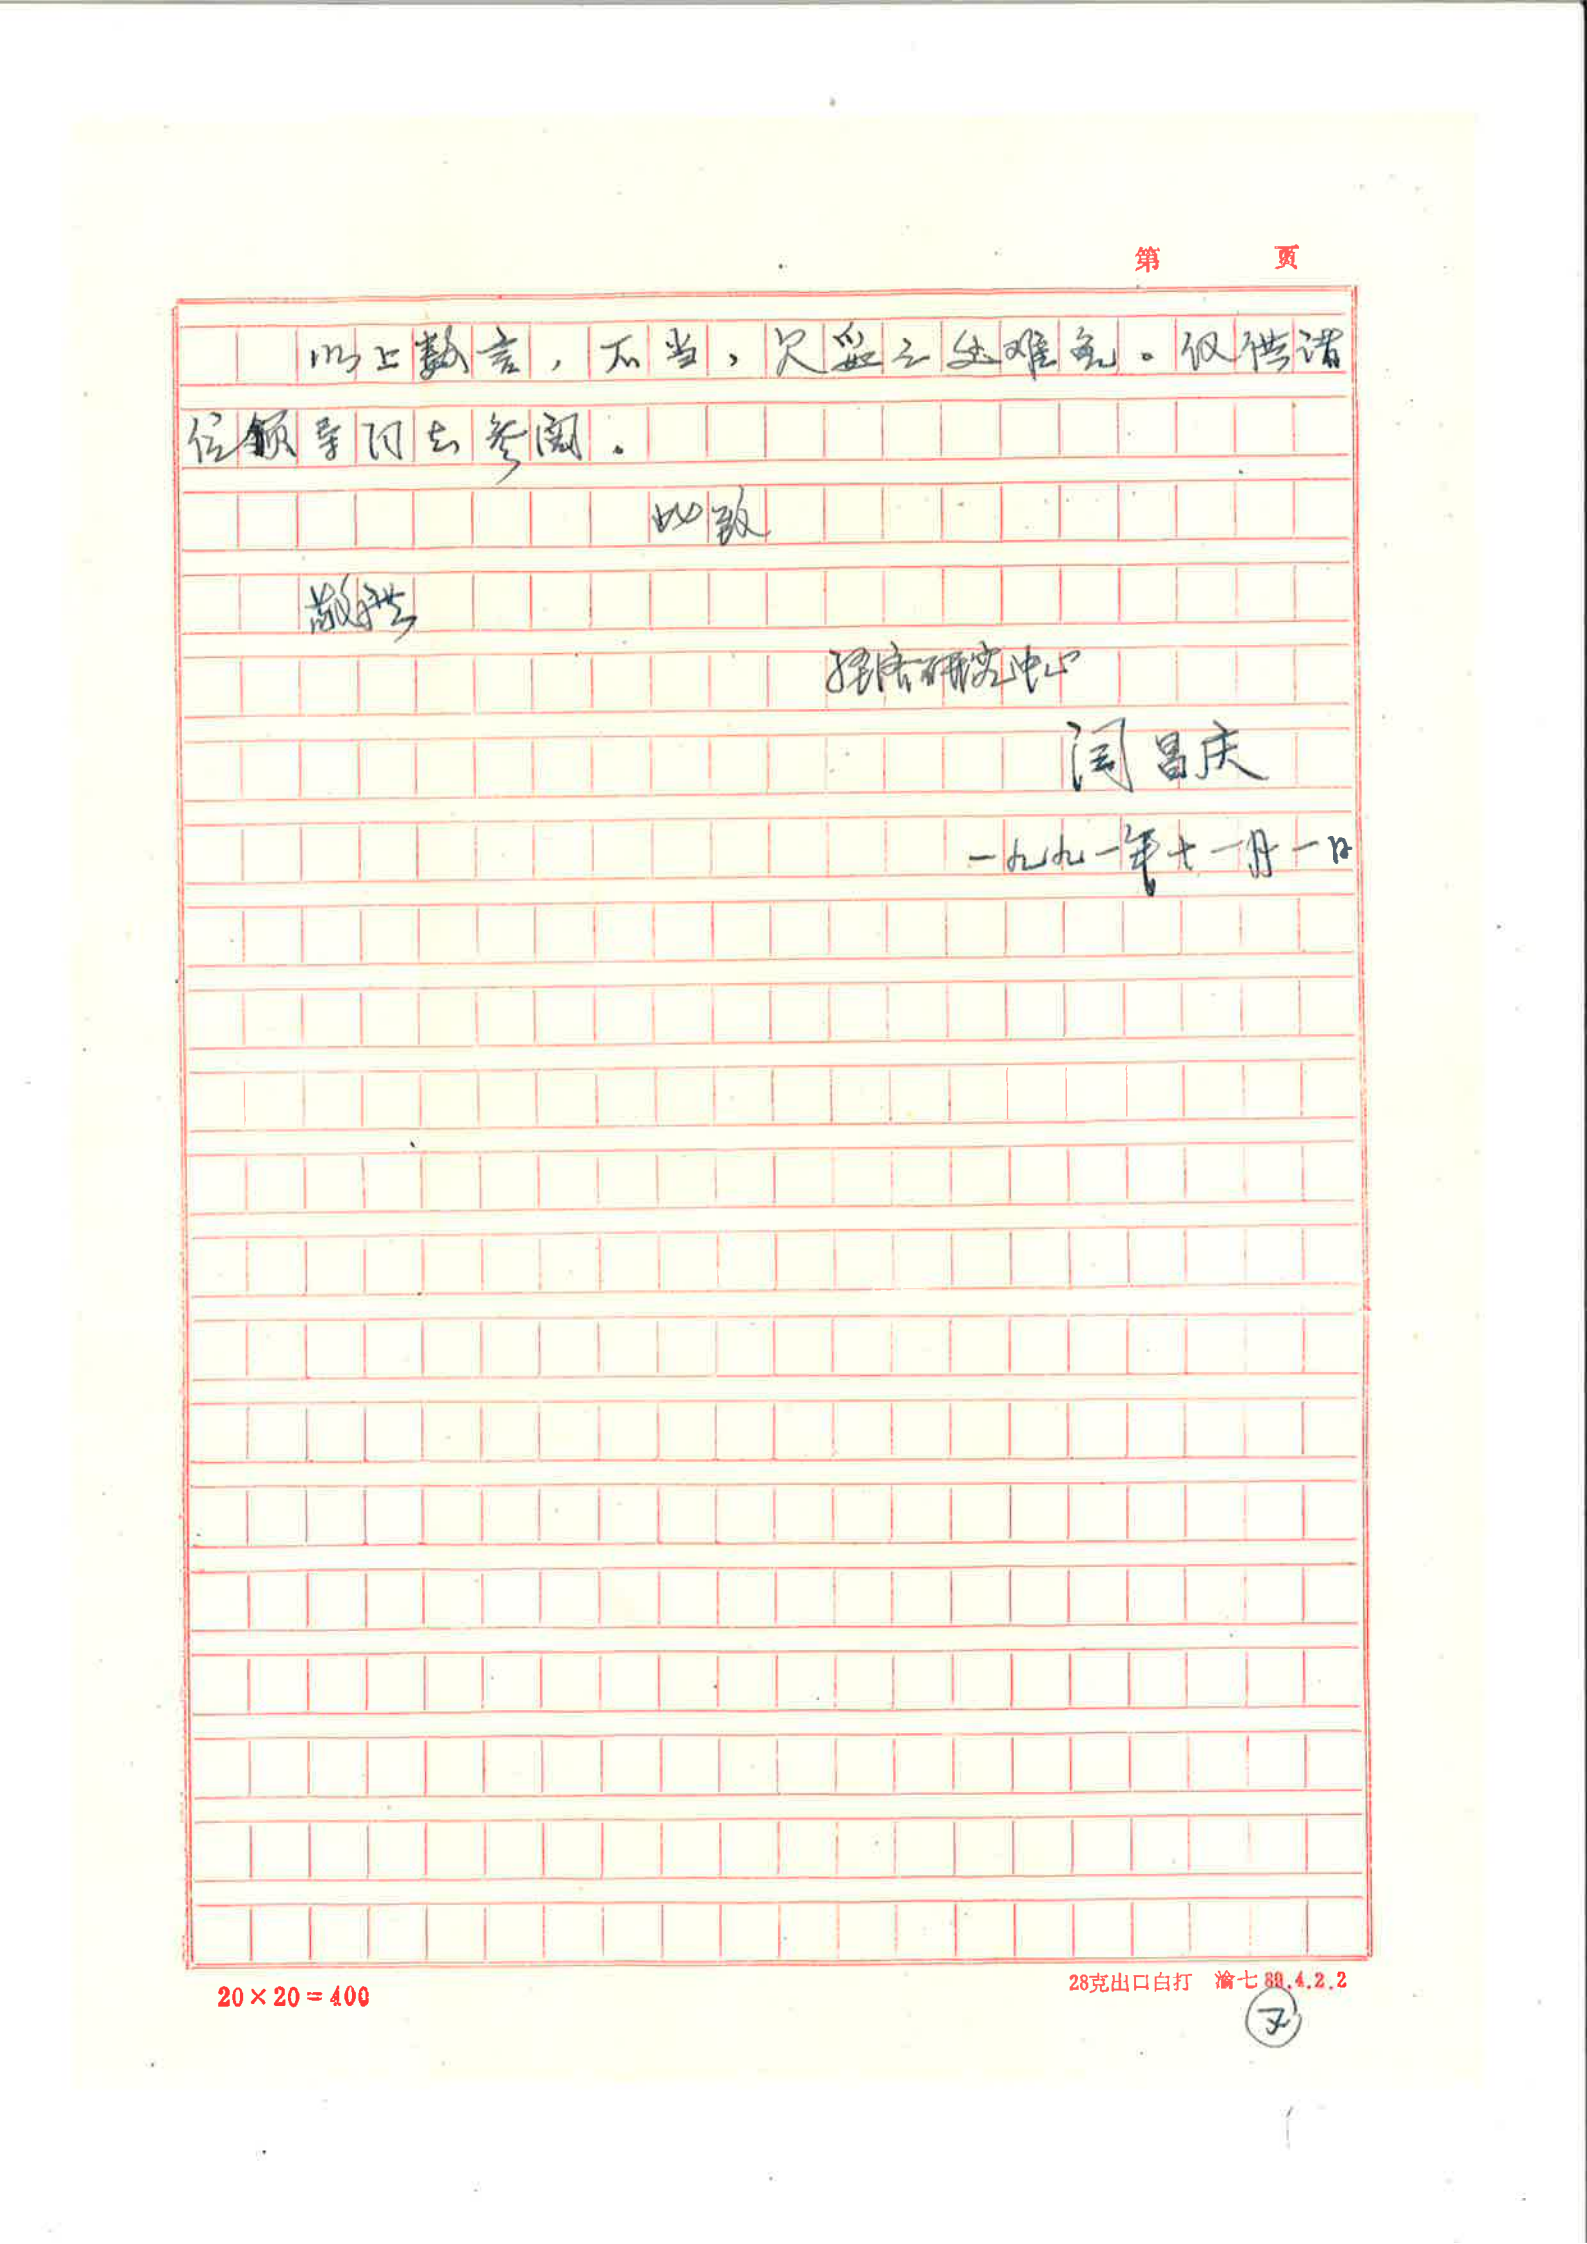 第 页
以上数言，不当，欠妥之处难免。仅供诸
位领导同志参阅。
此致
敬礼
经济研究中心
闫昌庆
一九九一年十一月一日
20×20=400
28克出口白打 渝七 89.4.2.2